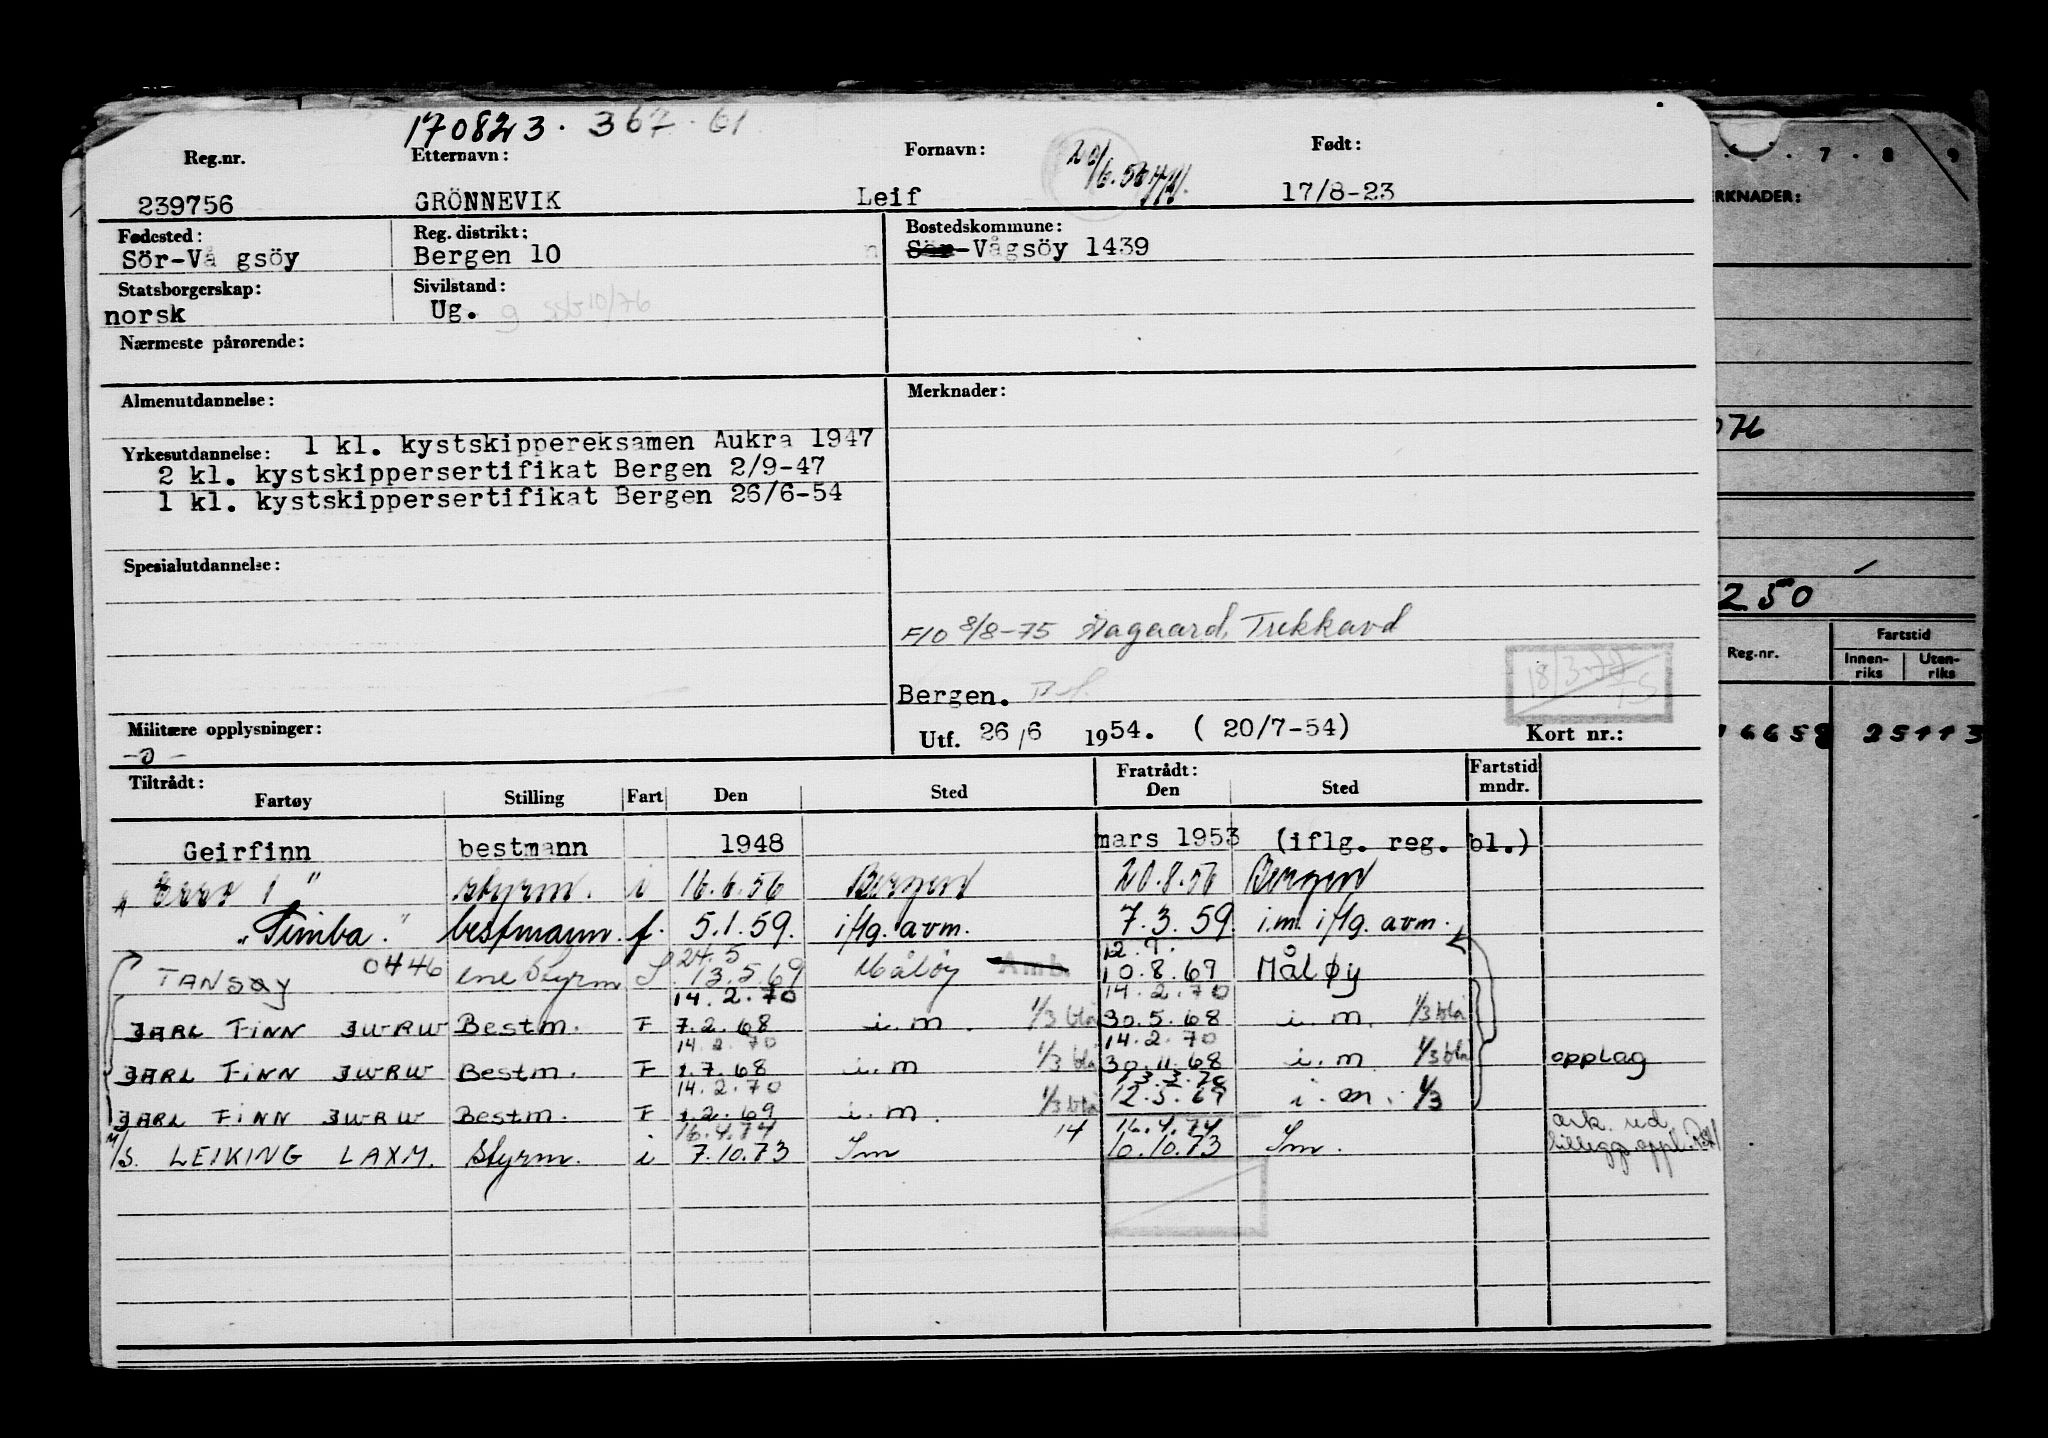 170823. 367. 61
Reg.nr. Etternavn: Fornavn: Født:
239756 GRÖNNEVIK Leif 17/8-23
Fødested: Reg. distrikt: Bostedskommune:
Sör-Vå gsöy Bergen 10 Sör-Vågsöy 1439
Statsborgerskap: Sivilstand:
norsk Ug. g 10/76
Nærmeste pårørende:
Almenutdannelse: Merknader:
Yrkesutdannelse: 1 kl. kystskippereksamen Aukra 1947
2 kl. kystskippersertifikat Bergen 2/9-47
1 kl. kystskippersertifikat Bergen 26/6-54
Spesialutdannelse:
F/O 8/8-75
Bergen.
Militære opplysninger: Utf. 26/6 1954. ( 20/7-54) Kort nr.:
-0-
Tiltrådt: Fratrådt: Fartstid
Fartøy Stilling Fart Den Sted Den Sted mndr.
Geirfinn bestmann 1948 mars 1953 (iflg. reg. bl.)
styrm. i 16.6.56 Bergen 20.8.56 Bergen
"Simba." bestmann. f. 5.1.59. iflg. avm. 7.3.59. i.m. iflg. avm.
24.5 12.7.
TANSØY 0446 ene styrm S 13.5.69 Måløy Amb. 10.8.69 Måløy
14.2.70 14.2.70
JARL FINN JWRW Bestm. F 7.2.68 i.m. 1/3 blå 30.5.68 i.m. 1/3 blå
14.2.70 14.2.70
JARL FINN JWRW Bestm. F 1.7.68 i.m 1/3 blå 30.11.68 i.m 1/3 blå opplag
14.2.70 13.3.70
JARL FINN JWRW Bestm. F 1.2.69 i.m. 1/3 blå 12.5.69 i.m. 1/3
16.4.74 14 16.4.74 ark. ved
M/S. LEIKING LAXM. Styrm. i 7.10.73 Im 10.10.73 Im.
7 . 8 . 9
RKNADER:
076
250
Fartstid
Reg.nr. Innen-riks Uten-riks
16658 25113